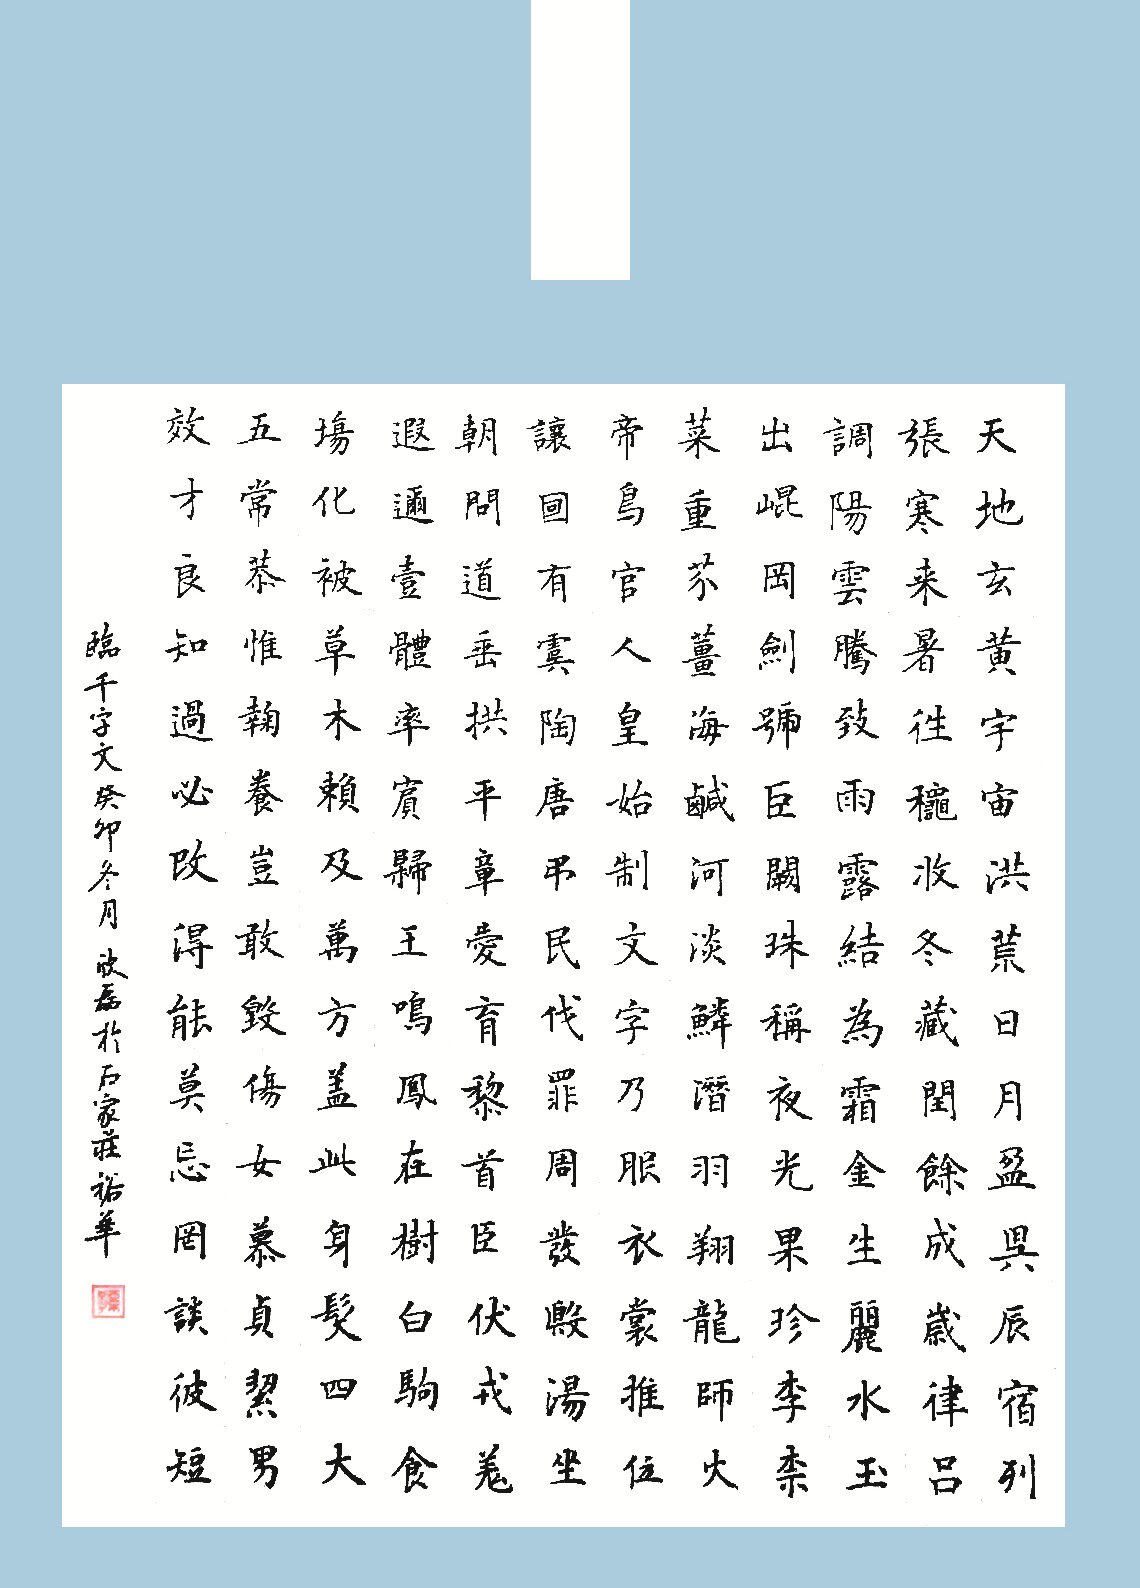 天地玄黃宇宙洪荒日月盈昃辰宿列
張寒来暑往穐收冬藏閏餘成歲律呂
調陽雲騰致雨露結為霜金生麗水玉
出崐岡劍號巨闕珠稱夜光果珍李柰
菜重芥薑海鹹河淡鱗潛羽翔龍師火
帝鳥官人皇始制文字乃服衣裳推位
讓囬有虞陶唐弔民伐罪周發殷湯坐
朝問道垂拱平章愛育黎首臣伏戎羌
遐邇壹體率賓歸王鳴鳳在樹白駒食
場化被草木賴及萬方盖此身髮四大
五常恭惟鞠養豈敢毀傷女慕貞絜男
效才良知過必改得能莫忘罔談彼短
臨千字文癸卯冬月磊於石家莊裕華